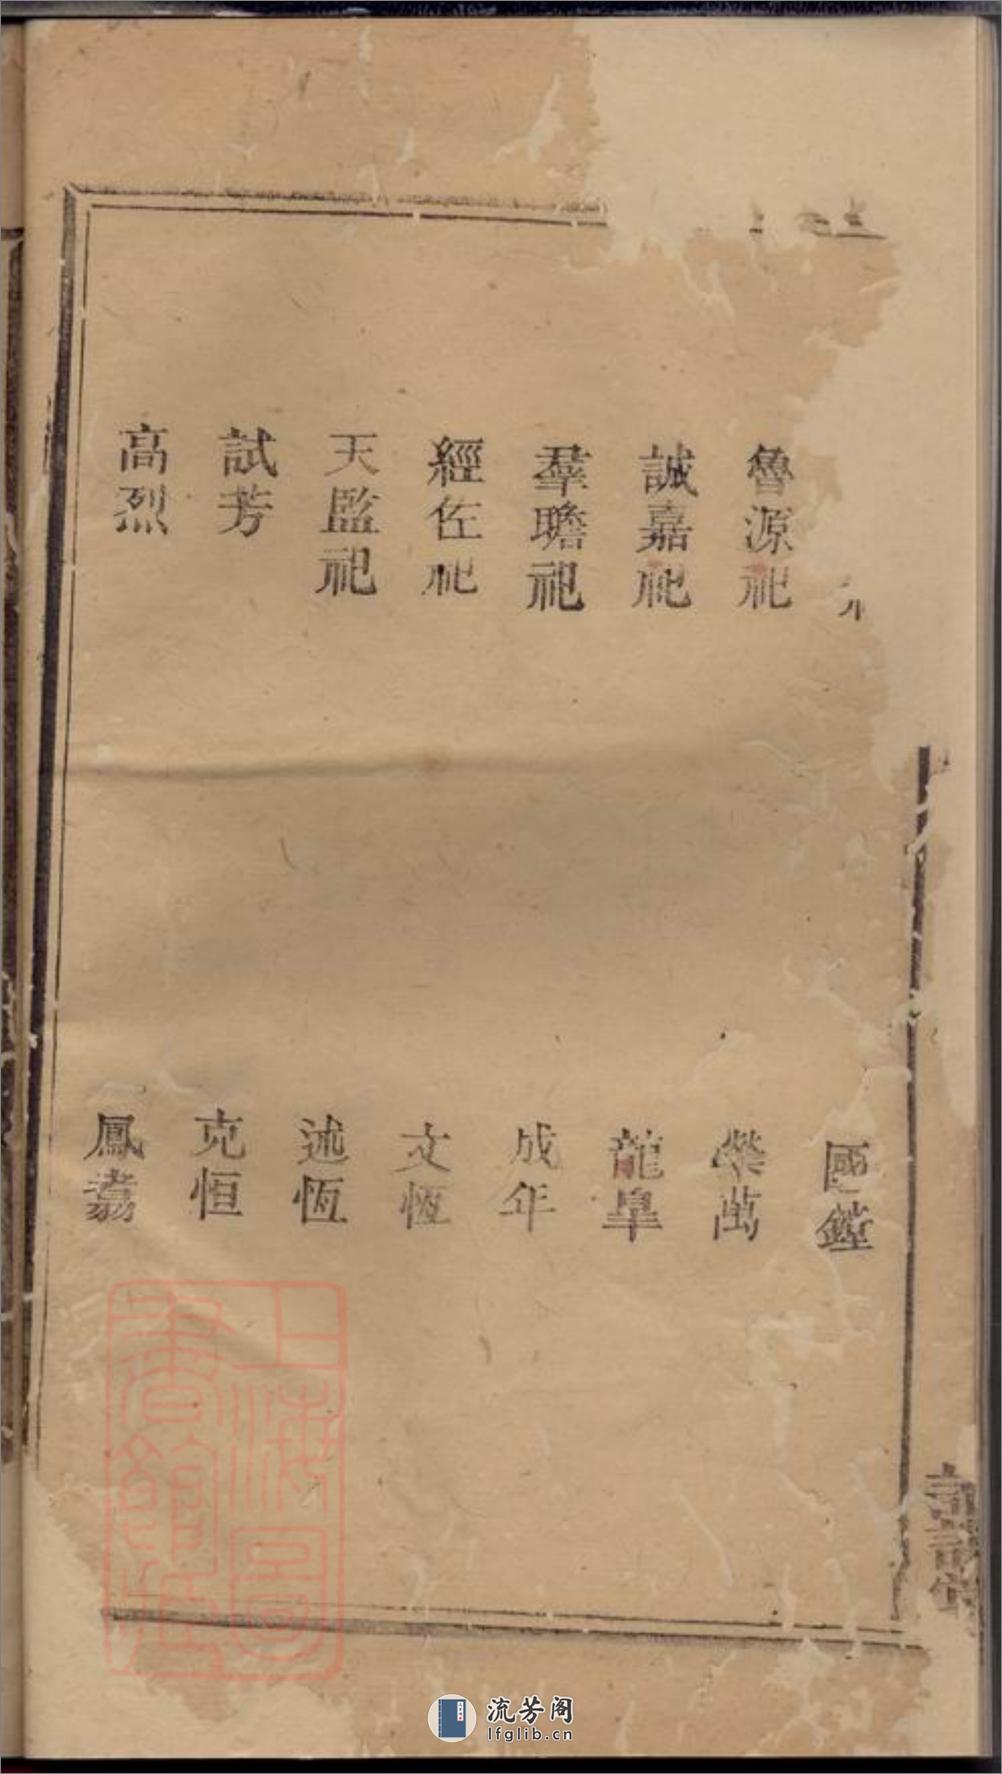 魯源祀
誠嘉祀
羣瞻祀
經佐祀
天監祀
試芳
高烈
榮萬
龍皐
成年
文恆
述恆
克恒
鳳翥
上海圖
書館藏
流芳阁
lfglib.cn